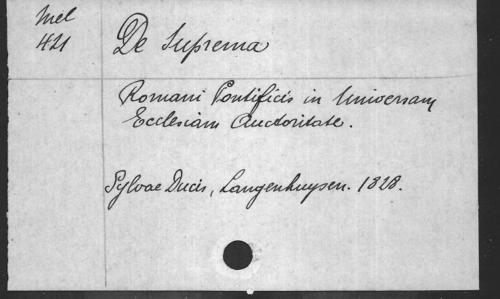 Mel
421
De Suprema
Romani Pontificis in Universam
Ecclesiam Auctoritate.
Sylvae Ducis, Langenhuysen. 1828.